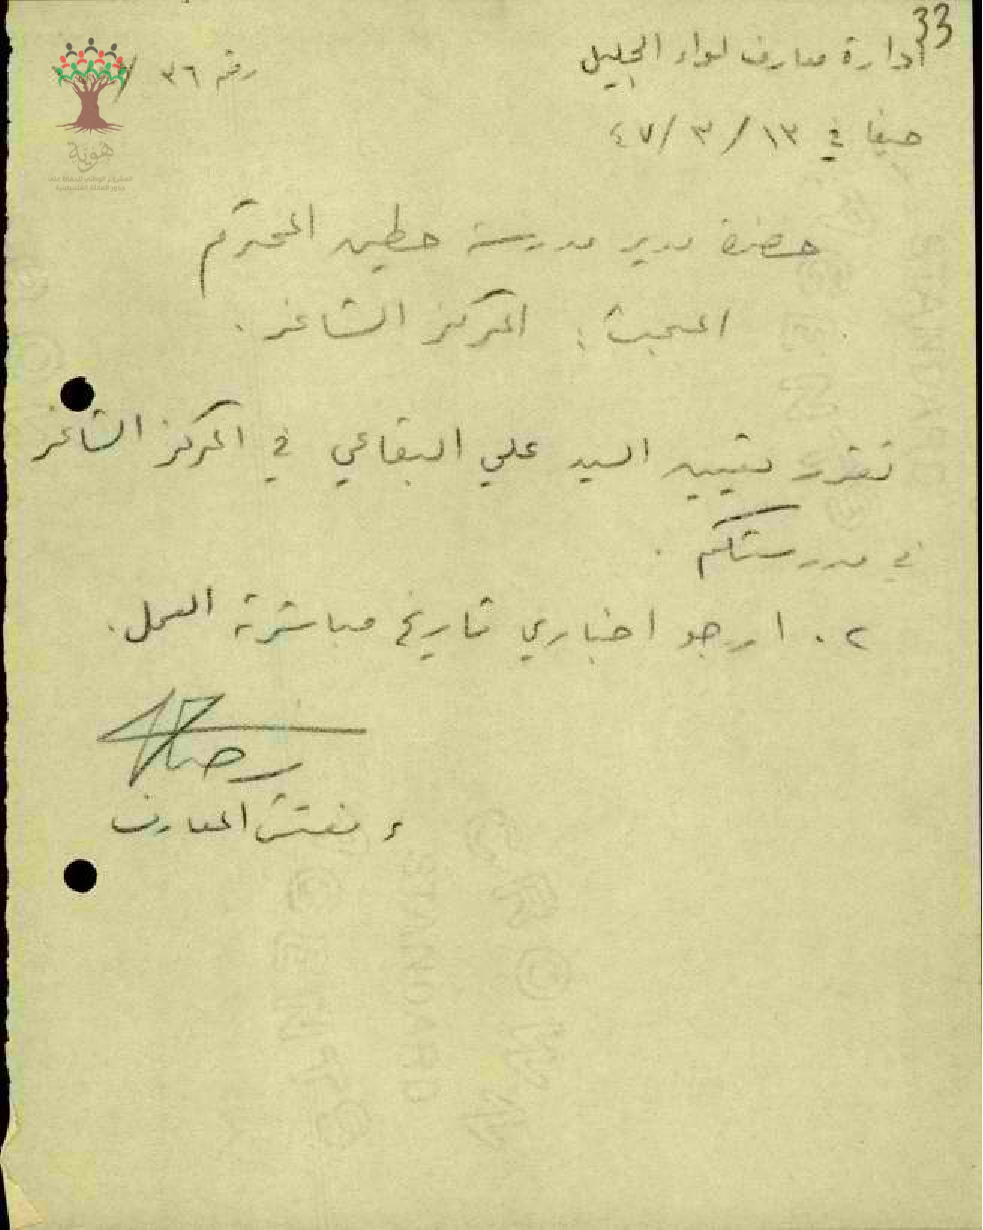 33
ادارة معارف لواء الجليل
رقم ٣٦ /
حيفا في ١٣ / ٣ / ٤٧
هوية
المشروع الوطني للحفاظ على
جذور العائلة الفلسطينية
حضرة مدير مدرسة حطين المحترم
المبحث : المركز الشاغر .
تقرر تعيين السيد علي البقاعي في المركز الشاغر
في مدرستكم .
٢ . ارجو اخباري تاريخ مباشرته العمل .
مفتش المعارف
STANDARD
CROWN